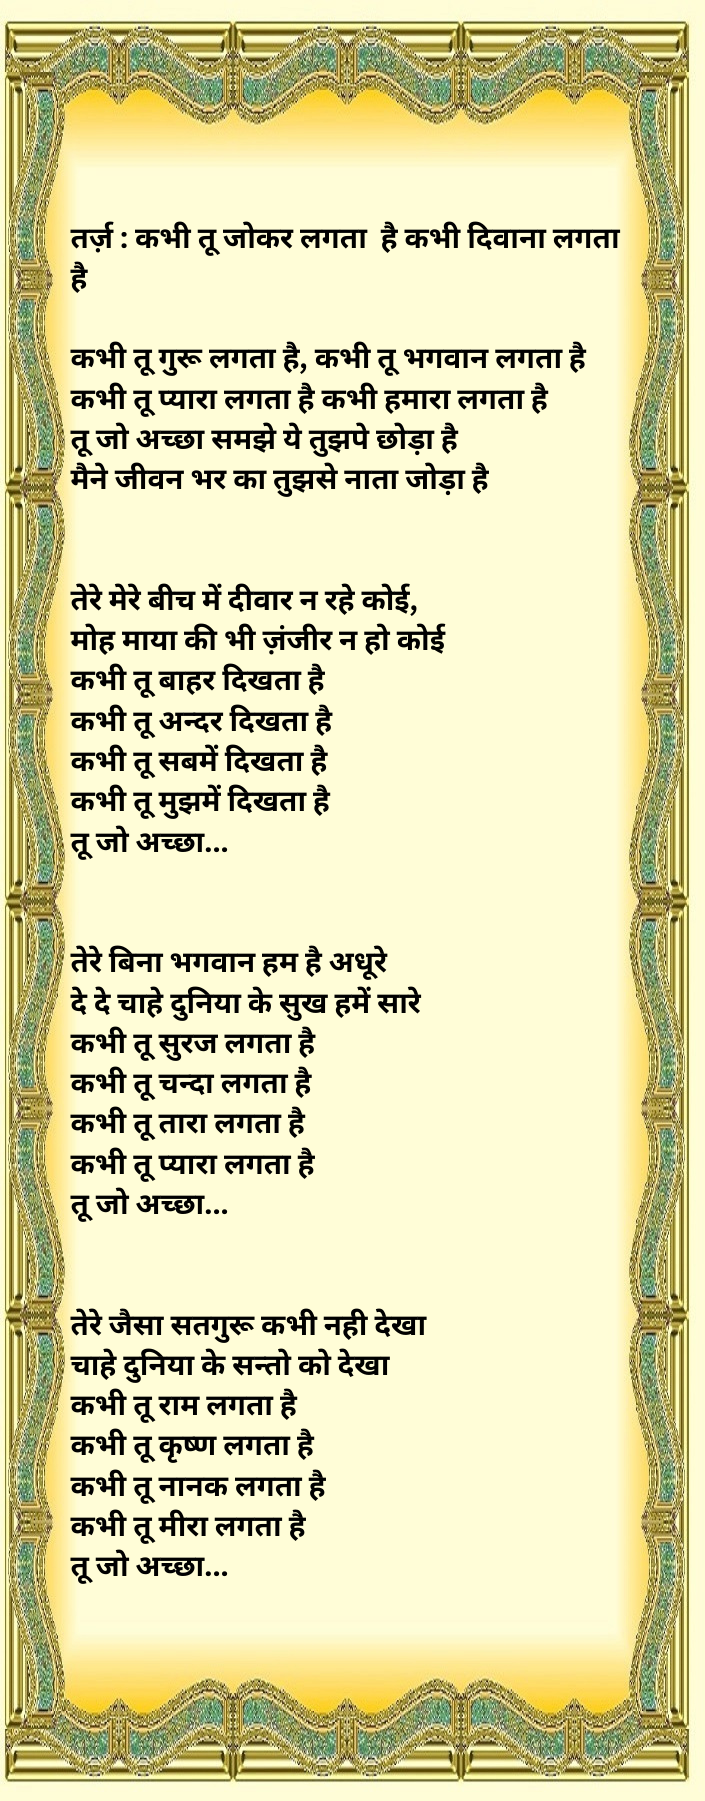 तर्ज़ : कभी तू जोकर लगता  है कभी दिवाना लगता
है
कभी तू गुरू लगता है, कभी तू भगवान लगता है
कभी तू प्यारा लगता है कभी हमारा लगता है
तू जो अच्छा समझे ये तुझपे छोड़ा है
मैने जीवन भर का तुझसे नाता जोड़ा है
तेरे मेरे बीच में दीवार न रहे कोई,
मोह माया की भी ज़ंजीर न हो कोई
कभी तू बाहर दिखता है
कभी तू अन्दर दिखता है
कभी तू सबमें दिखता है
कभी तू मुझमें दिखता है
तू जो अच्छा...
तेरे बिना भगवान हम है अधूरे
दे दे चाहे दुनिया के सुख हमें सारे
कभी तू सुरज लगता है
कभी तू चन्दा लगता है
कभी तू तारा लगता है
कभी तू प्यारा लगता है
तू जो अच्छा...
तेरे जैसा सतगुरू कभी नही देखा
चाहे दुनिया के सन्तो को देखा
कभी तू राम लगता है
कभी तू कृष्ण लगता है
कभी तू नानक लगता है
कभी तू मीरा लगता है
तू जो अच्छा...